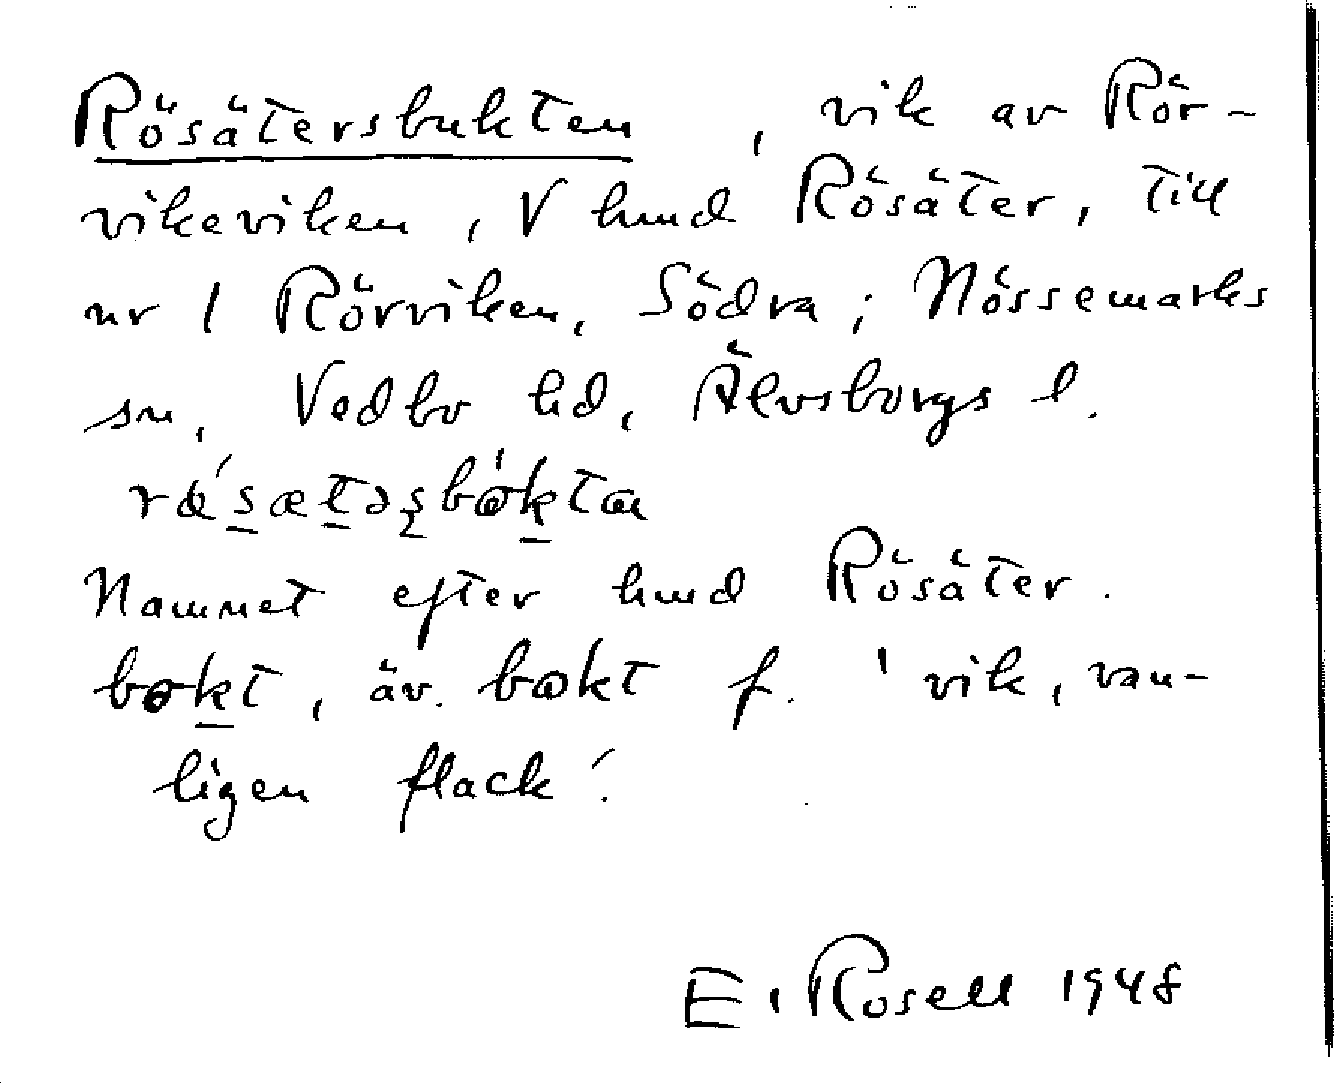 Rösätersbukten, vik av Rör-
vikeviken, V hmd Rösäter, till
nr 1 Rörviken, Södra; Nössemarks
sn, Vedbo hd, Älvsborgs l.
Namnet efter hmd Rösäter.
bøkt, äv. bɷkt f. 'vik, van-
ligen flack'.
E. Rosell 1948